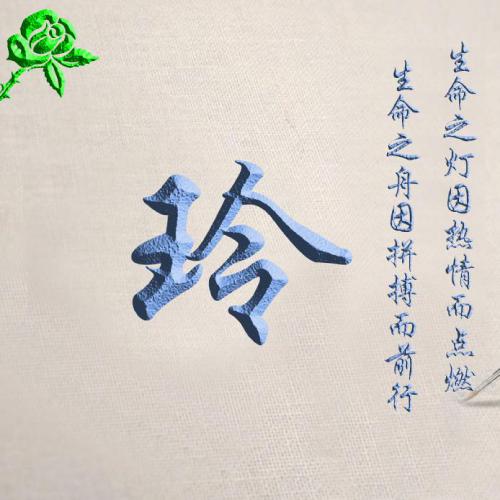 生命之灯因热情而点燃
生命之舟因拼搏而前行
玲